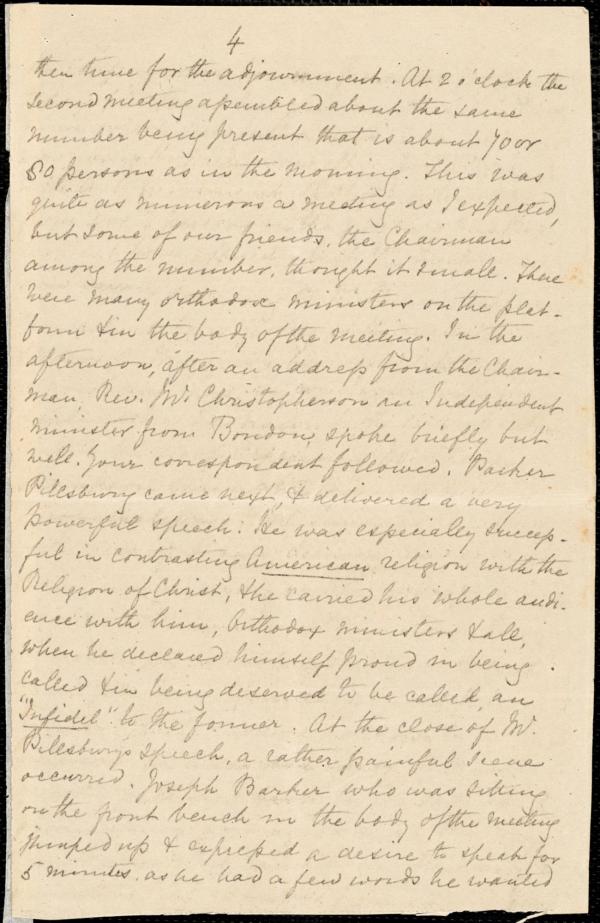 4
then time for the adjournment. At 2 o'clock the
second meeting assembled about the same
number being present that is about 70 or
80 persons as in the morning. This was
quite as numerous a meeting as I expected,
but some of our friends, the Chairman
among the number, thought it small. There
were many orthodox ministers on the plat-
form & in the body of the meeting. In the
afternoon, after an address from the Chair-
man, Rev. Mr. Christopherson an Independent
minister from Bondon, spoke briefly but
well. Your correspondent followed. Parker
Pillsbury came next, & delivered a very
powerful speech. He was especially success-
ful in contrasting American religion with the
Religion of Christ, & he carried his whole audi-
ence with him, Orthodox ministers & all,
when he declared himself proud in being
called & in being deserved to be called, an
"Infidel" to the former. At the close of Mr.
Pillsburys speech, a rather painful scene
occurred. Joseph Barker who was sitting
on the front bench in the body of the meeting
jumped up & expressed a desire to speak for
5 minutes, as he had a few words he wanted